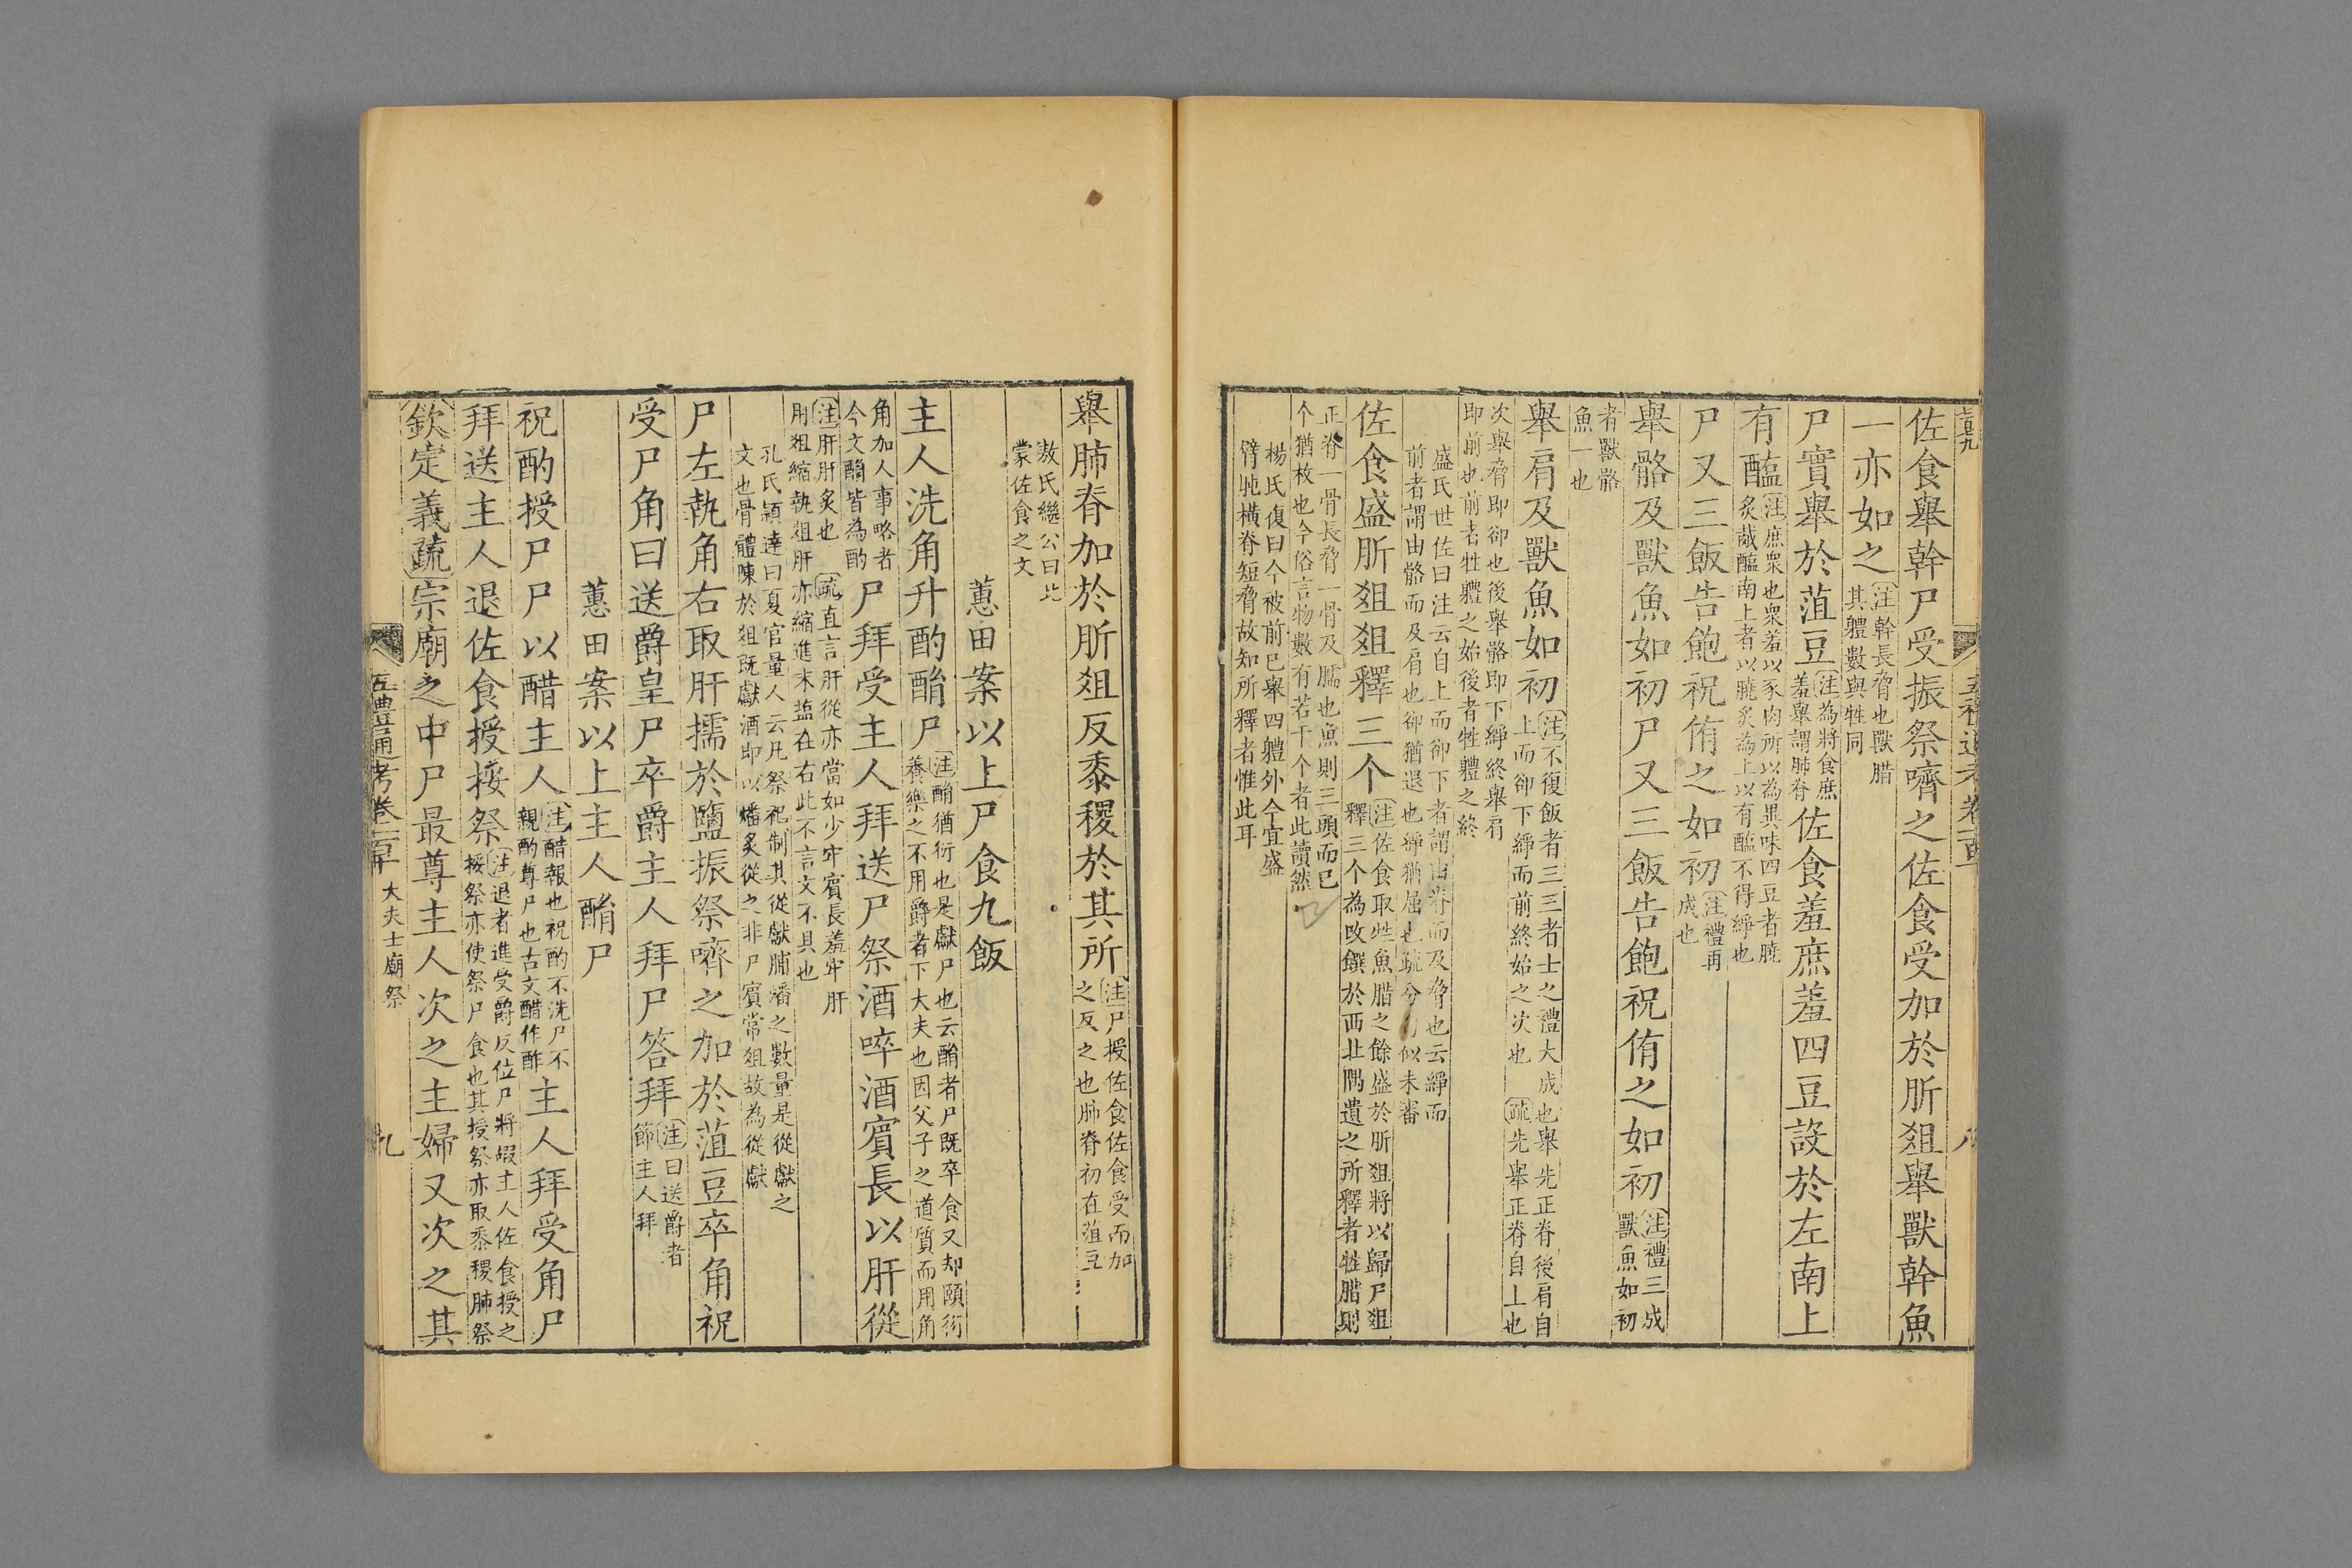 佐食舉幹尸受振祭嚌之佐食受加於肵俎舉獸幹魚
一亦如之
注幹長脅也獸腊
其體數與牲同
尸實舉於菹豆
注為將食庶
羞舉謂肺脊
佐食羞庶羞四豆設於左南上
有醢
注庶衆也衆羞以豕肉所以為異味四豆者膮
炙胾醢南上者以膮炙為上以有醢不得綪也
尸又三飯告飽祝侑之如初
注禮再
成也
舉骼及獸魚如初尸又三飯告飽祝侑之如初
注禮三成
獸魚如初
者獸骼
魚一也
舉肩及獸魚如初
注不復飯者三三者士之禮大成也舉先正脊後肩自
上而卻下綪而前終始之次也 疏先舉正脊自上也
次舉脅即卻也後舉骼即下綪終舉肩
即前也前者牲體之始後者牲體之終
盛氏世佐曰注云自上而卻下者謂由脊而及脅也云綪而
前者謂由骼而及肩也卻猶退也綪猶屈也疏分似未審
佐食盛肵俎俎釋三个
注佐食取牲魚腊之餘盛於肵俎將以歸尸俎
釋三个為改饌於西北隅遺之所釋者牲腊則
正脊一骨長脅一骨及臑也魚則三頭而已
个猶枚也今俗言物數有若干个者此讀然
楊氏復曰今被前已舉四體外今宜盛
臂肫橫脊短脅故知所釋者惟此耳
八
舉肺脊加於肵俎反黍稷於其所
注尸授佐食佐食受而加
之反之也肺脊初在菹豆
敖氏繼公曰此
蒙佐食之文
蕙田案以上尸食九飯
主人洗角升酌酳尸
注酳猶衍也是獻尸也云酳者尸既卒食又却頤衍
養樂之不用爵者下大夫也因父子之道質而用角
角加人事略者
今文酳皆為酌
尸拜受主人拜送尸祭酒啐酒賓長以肝從
注肝肝炙也 疏直言肝從亦當如少牢賓長羞牢肝
用俎縮執俎肝亦縮進末盐在右此不言文不具也
孔氏穎達曰夏官量人云凡祭祀制其從獻脯燔之數量是從獻之
文也骨體陳於俎既獻酒即以燔炙從之非尸賓常俎故為從獻
尸左執角右取肝擩於鹽振祭嚌之加於菹豆卒角祝
受尸角曰送爵皇尸卒爵主人拜尸答拜
注曰送爵者
節主人拜
蕙田案以上主人酳尸
祝酌授尸尸以醋主人
注醋報也祝酌不洗尸不
親酌尊尸也古文醋作酢
主人拜受角尸
拜送主人退佐食授挼祭
注退者進受爵反位尸將嘏主人佐食授之
挼祭亦使祭尸食也其授祭亦取黍稷肺祭
欽定義疏宗廟之中尸最尊主人次之主婦又次之其
五禮通考卷一百九 大夫士廟祭 九